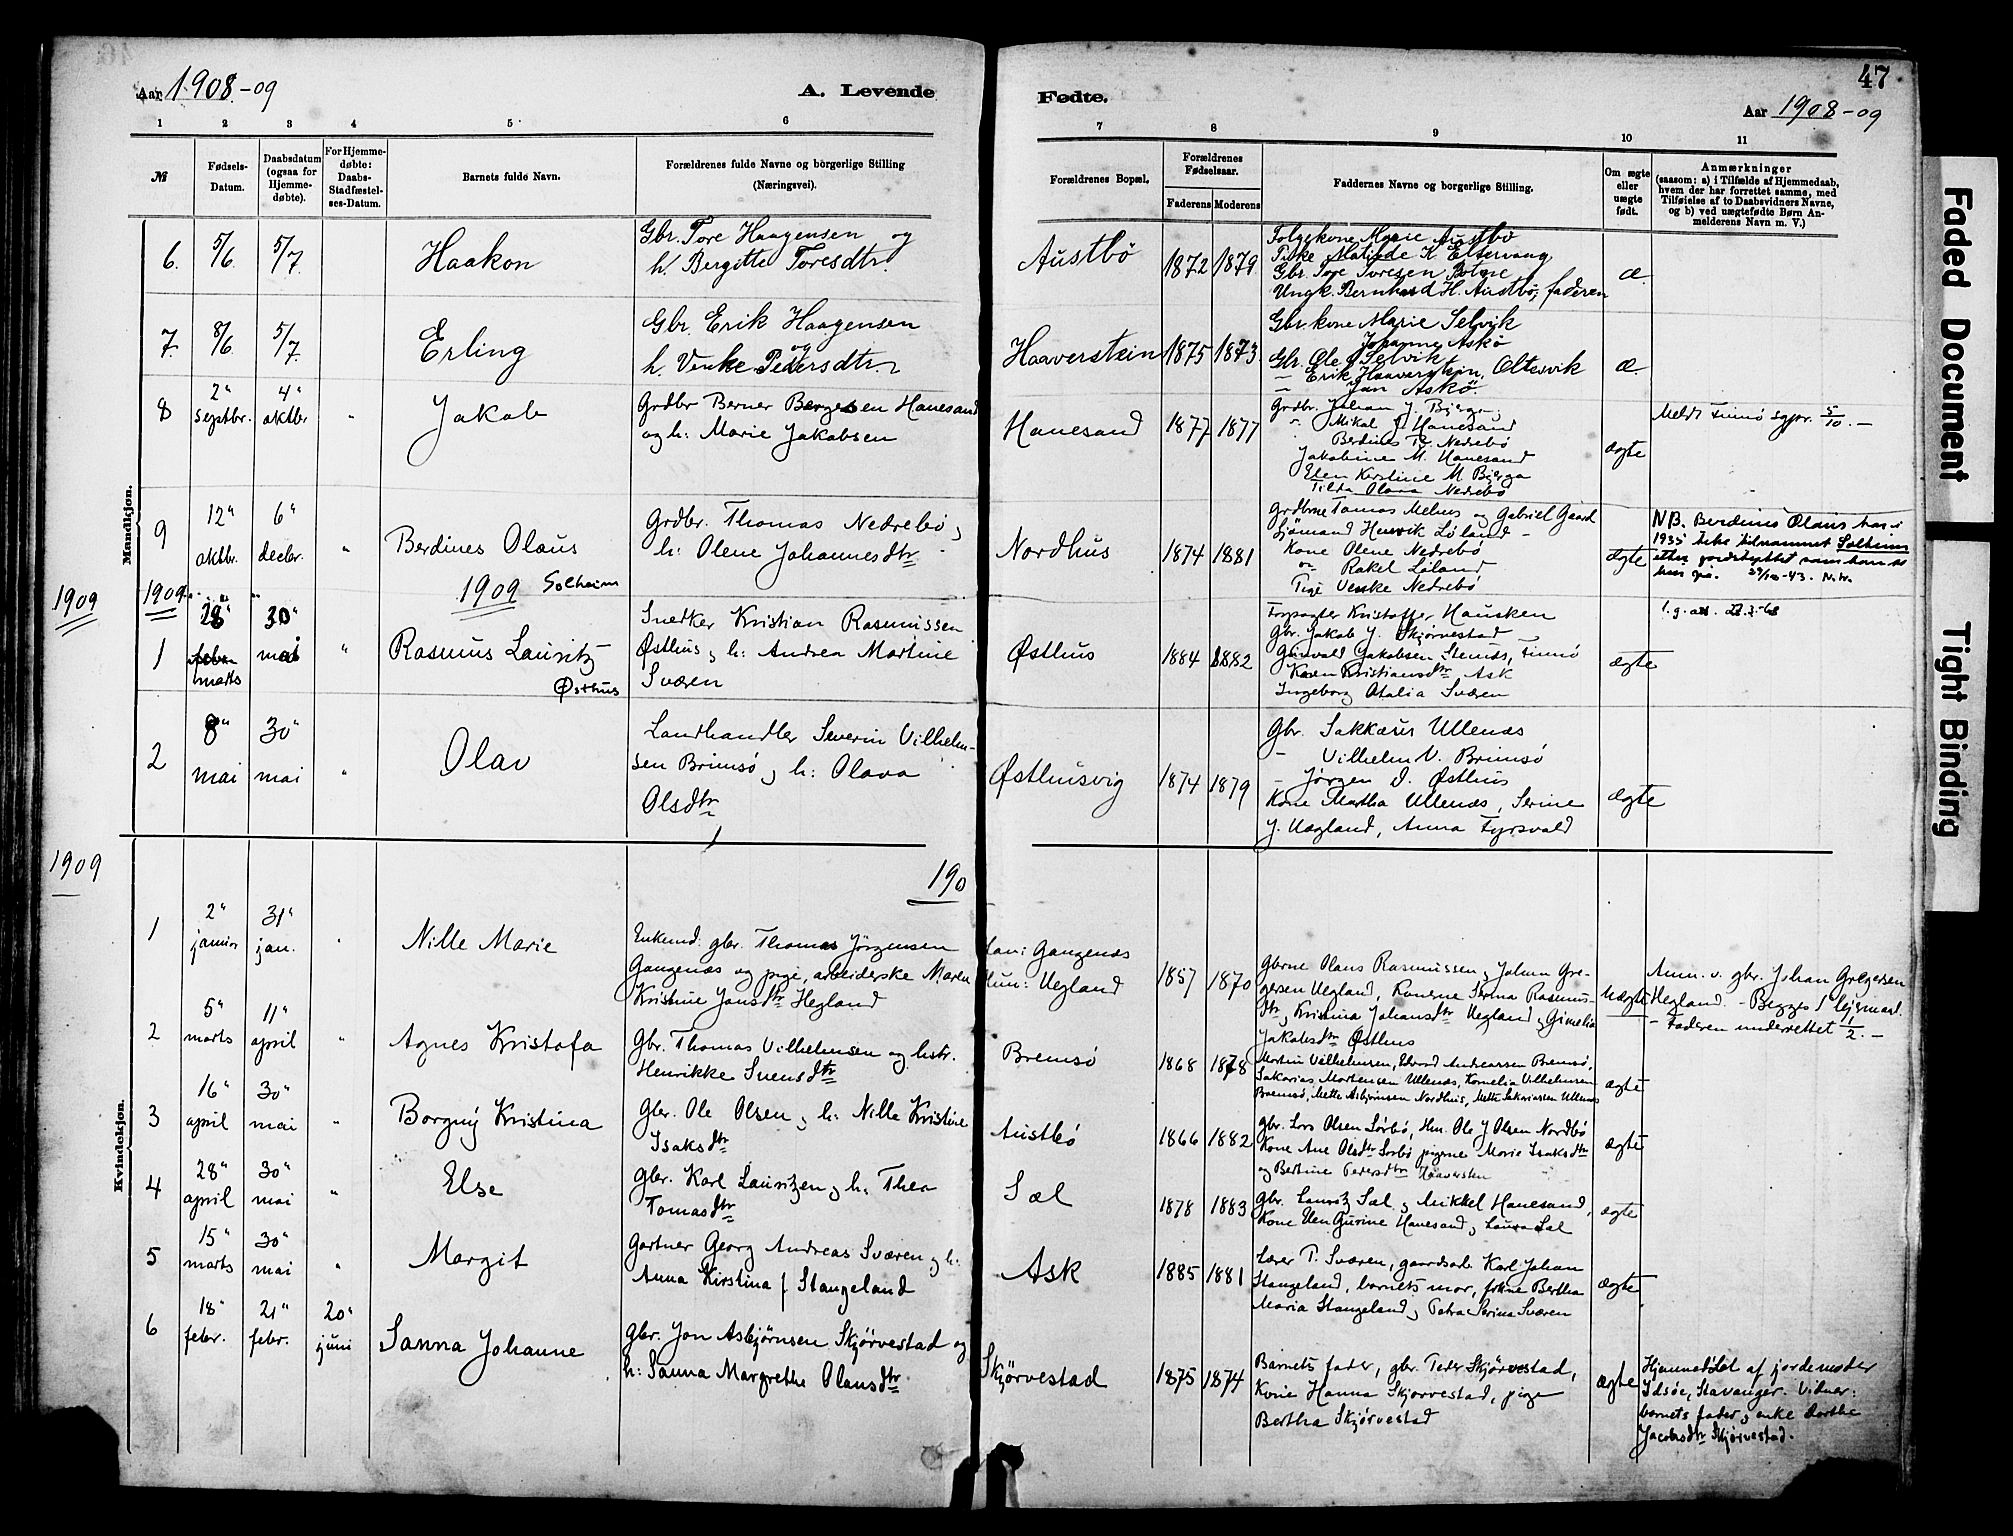 47
Aar 1908-09
A. Levende
Fødte.
Aar 1908-09
1 2 3 4 5 6 7 8 9 10 11
№
Fødsels-
Datum.
Daabsdatum
(ogsaa for
Hjemme-
døbte).
For Hjemme-
døbte:
Daabs-
Stadfæstel-
ses-Datum.
Barnets fulde Navn.
Forældrenes fulde Navne og borgerlige Stilling
(Næringsvei).
Forældrenes Bopæl.
Forældrenes
Fødselsaar.
Faderens Moderens
Faddernes Navne og borgerlige Stilling.
Om ægte
eller
uægte
født.
Anmærkninger
(saasom: a) i Tilfælde af Hjemmedaab,
hvem der har forrettet samme, med
Tilføielse af to Daabsvidners Navne,
og b) ved uægtefødte Børn An-
melderens Navn m. V.)
Mandkjøn.
6. 5/6. 5/7. Haakon
Gbr. Tore Haagensen og
h. Bergitte Toresdtr.
Austbö 1872 1879
Folgekone Marie Austbö
Pike Matilde K Eltervaag
Gbr. Tore Toresen
Ungk. Bernhard H. Austbö, faderen
æ.
7. 8/6. 5/7. Erling
Gbr. Erik Haagensen
og
h. Venke Pedersdtr.
Haaverstein 1875 1873
Gbr. kone Marie Selvik
Johanne Askö
Gbr. Ole Selvik
- Erik Haaverstein, Oltesvik
- Jan Askö.
æ.
8 2" septbr. 4" oktbr " Jakob
Grdbr Berner Bergesen Hanesand
og h: Marie Jakobsen
Hanesand 1877 1877
Grdbr. Johan J. Bjerga,
- Mikal J. Hanesand
Berdines T. Nedrebö
Jakobine M. Hanesand
Elen Kirstine M Bjerga
Tilda Olava Nedrebö
ægte
Meldt Finnö sgpr. 5/10. -
9 12" oktbr. 6" decbr. " Berdines Olaus
Solheim
Grdbr. Thomas Nedrebö,
h: Olene Johannesdtr
Nordhus 1874 1881
Grdbrne Tomas Melus og Gabriel Gaard
Sjömand Henrik Löland -
Kone Olene Nedrebö
" Rakel Löland
Pige Venke Nedrebö
ægte
NB. Berdines Olaus har i
1935 tilnavnet Solheim
etter jordstykket som han
bor på. -43.
1909 1909 1909
1 28" febr. marts 30" mai " Rasmus Lauritz
Østhus
Snedker Kristian Rasmussen
Østhus, h: Andrea Martine
Sværen
Østhus 1884 1882
Forpagter Kristoffer Hausken
Gbr. Jakob J. Skjørvestad
Grinvald Jakobsen Stenes, Finnö
Karen Kristiansdtr Ask
Ingeborg Atalia Sværen
ægte
2 8" mai 30" mai " Olav
Landhandler Severin Vilhelm-
sen Brimsö, h: Olava
Olsdtr
Østhusvig 1874 1879
Gbr. Sakkæus Ullenæs
- Vilhelm V. Brimsö
- Jörgen D. Østhus
Kone Martha Ullenæs, Serine
J. Hegland, Anna Fyrsvald
ægte
1909
190
Kvindekjøn.
1 2" januar 31" jan. " Nille Marie
Enkemd. gbr. Thomas Jörgensen
Gangenæs og pige, arbeiderske Maren
Kristine Jansdtr Hegland
Han: Gangenæs
Hun: Hegland 1857 1870
Gbrne Olaus Rasmussen, Johan Gre-
gersen Hegland, Konerne Serina Rasmus-
dtr, Kristina Johansdtr Hegland, Gimelia
Jakobsdtr Østhus
Uægte
Anm. v. gbr. Johan Gregersen
Hegland. - Begges 1 leiermaal.
- Faderen underrettet 1/2. -
2 5" marts 11" april " Agnes Kristofa
Gbr. Thomas Vilhelmsen og hstr.
Henrikke Svensdtr
Bremsö 1868 1878
Morten Vilhelmsen, Edvard Andreassen Bremsö,
Sakarias Mortensen Ullenæs, Kornelia Vilhelmsen
Bremsö, Mette Asbjörnsen Nordhus, Mette Sakariassen Ullenæs
ægte
3 16" april 30" mai " Borgny Kristina
Gbr. Ole Olsen, h: Nille Kristine
Isaksdtr
Austbö 1866 1882
Gbr. Lars Olsen Sörbö, Hm. Ole J Olsen Nordbö
Kone Ane Olsdtr Sörbö pigerne Marie Isaksdtr
og Bertine Pedersdtr Haaversten
ægte
4 28" april 30" mai " Else
Gbr. Karl Lauritzen, h: Thea
Tomasdtr
Sæl 1878 1883
Gbr. Lauritz Sæl, Mikkel Hanesand,
Kone Gurine Hanesand, Laura Sæl
ægte
5 15" marts 30" mai " Margit
Gartner Georg Andreas Sværen, h:
Anna Kirstina f. Stangeland
Ask 1885 1881
Lærer T. Sværen, gaardsarb Karl Johan
Stangeland, barnets mor, frkne Bertha
Maria Stangeland, Petra Serine Sværen
ægte
6 18" febr. 21" febr. 20" juni Sanna Johanne
Gbr. Jon Asbjørnsen Skjørvestad og
h: Sanna Margrethe Olausdtr
Skjørvestad 1875 1874
Barnets fader, gbr. Peder Skjørvestad,
Kone Hanna Skjørvestad, pige
Bertha Skjørvestad
ægte
Hjemmedöbt af jordemoder
Idsöe, Stavanger. Vidner:
barnets fader, enke Dorthe
Jacobsdtr Skjørvestad.
Faded Document
Tight Binding